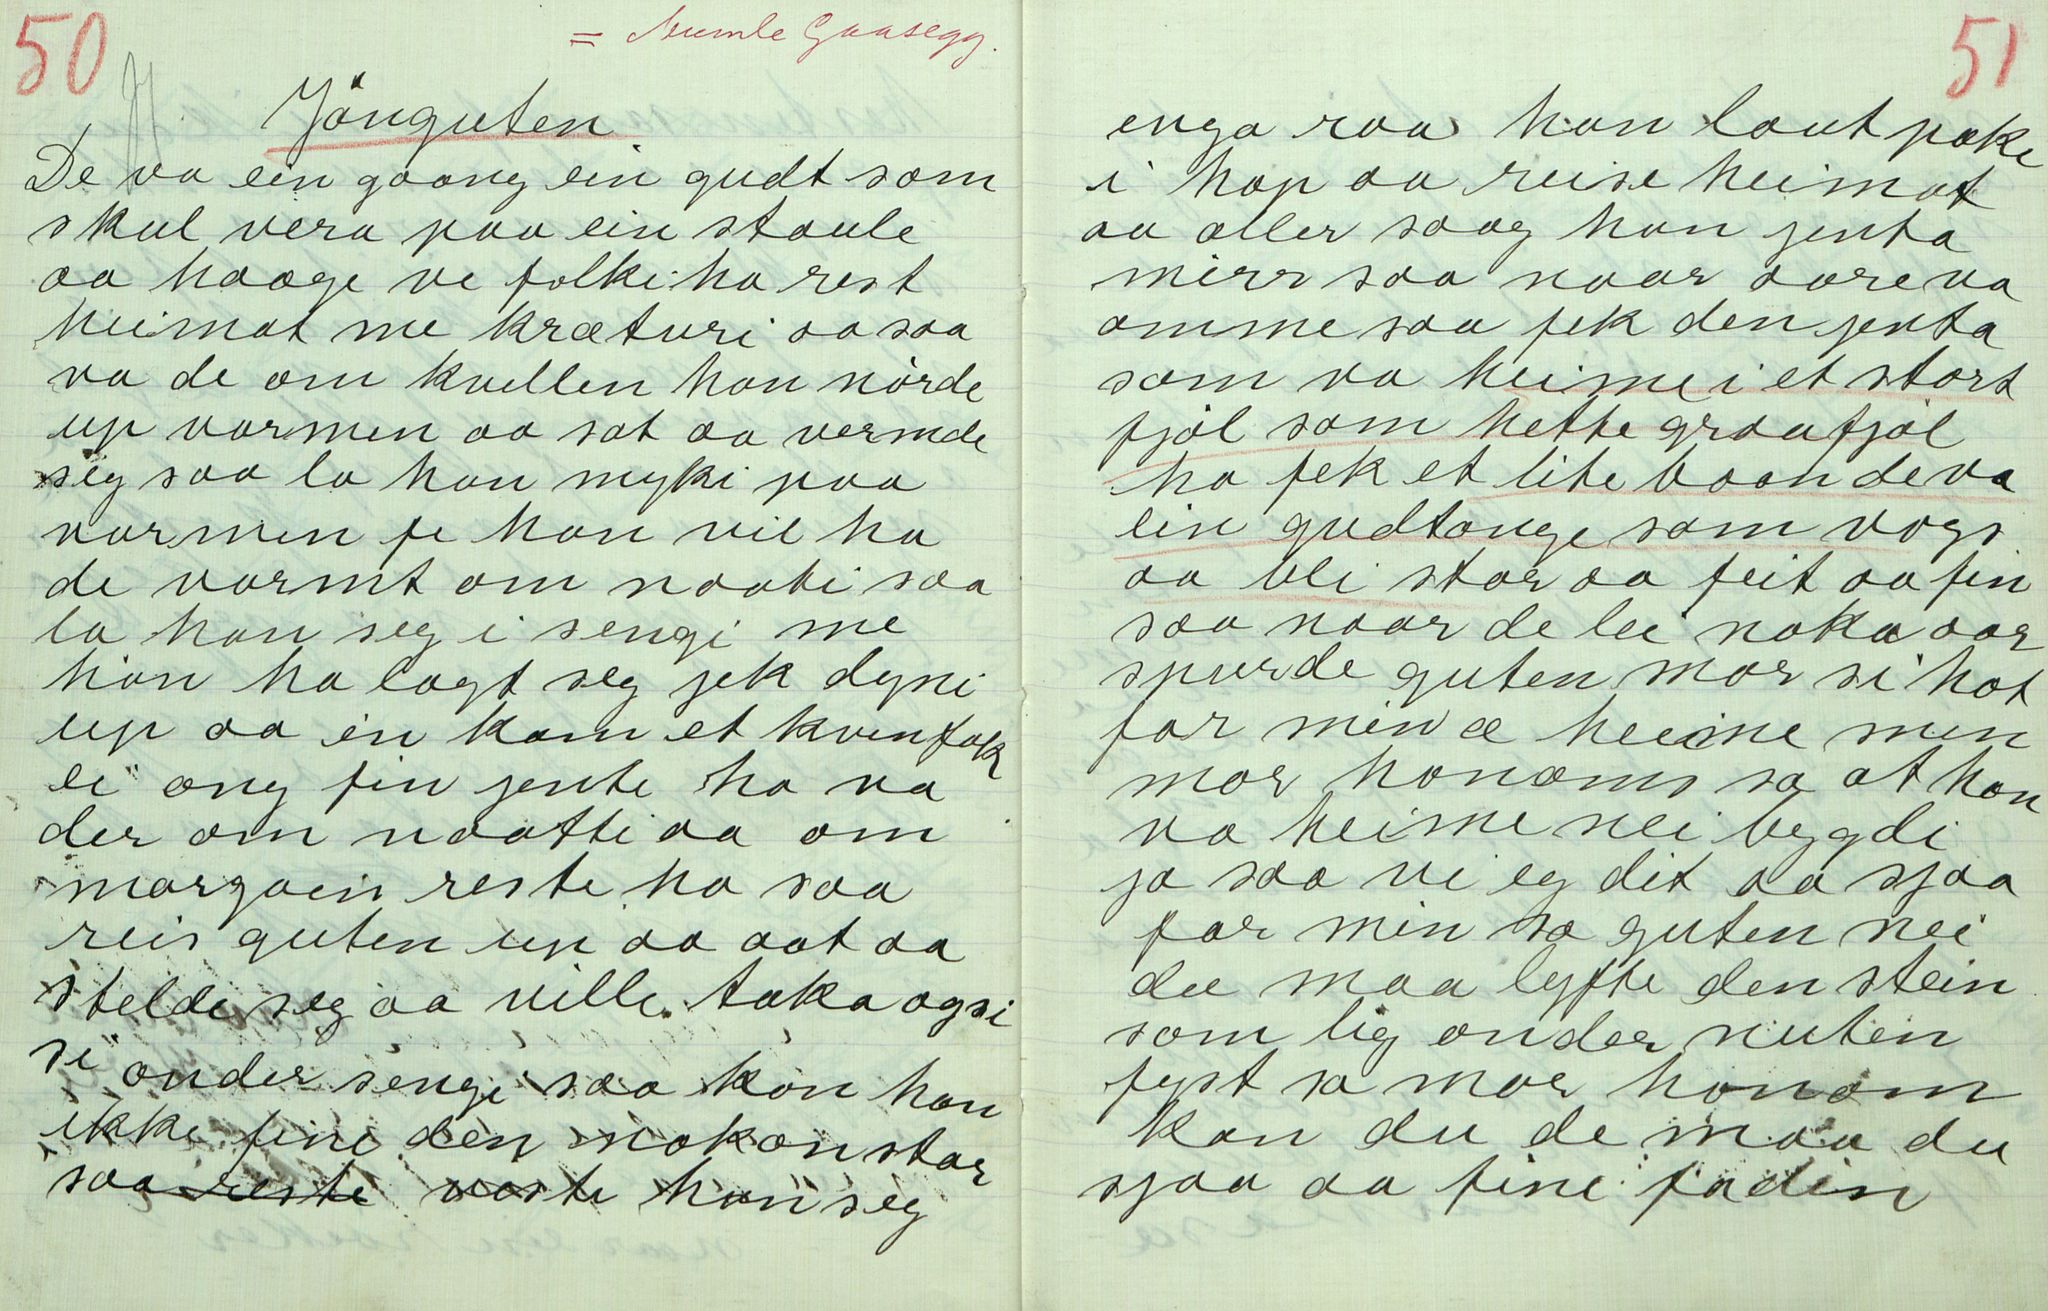 50
= Mumle Gaasegg.
Jönguten
De va ein gaang ein gudt som
skul vera paa ein staule
aa haage ve folki ha rest
heimat me kræturi aa saa
va de om kvellen han nörde
up varmen aa sat aa vermde
seg saa la han myki paa
varmen fe han vil ha
de varmt om naati saa
la han seg i sengi me
hån ha lagt seg jek dyni
up aa in kam et kvinfolk
ei ong fin jente ha va
der om naatti aa om
morgaen reste ha saa
reis guten up aa aat aa
stelde seg aa ville taka ogsi
si onder sengi saa kån han
ikke fine den mokon star
saa reste vaste han seg
51
enga raa han laut pake
i hop aa reise heimat
aa aller saag han jenta
mirr saa naar aare va
omme saa fek den jenta
som va heime i et stort
fjøl som hette graafjøl
ha fek et lite baan de va
ein gudtonge som vogs
aa bli stor aa feit aa fin
saa naar de lei noka aar
spurde guten mor si hot
far min æ heime men
mor honoms sa at han
va heime nei bygdi
ja saa vi eg dit aa sjaa
far min sa guten nei
du maa lyfte den stein
som lig onder nuten
fyst sa mor honom
kan du de maa du
sjaa aa fine fadin